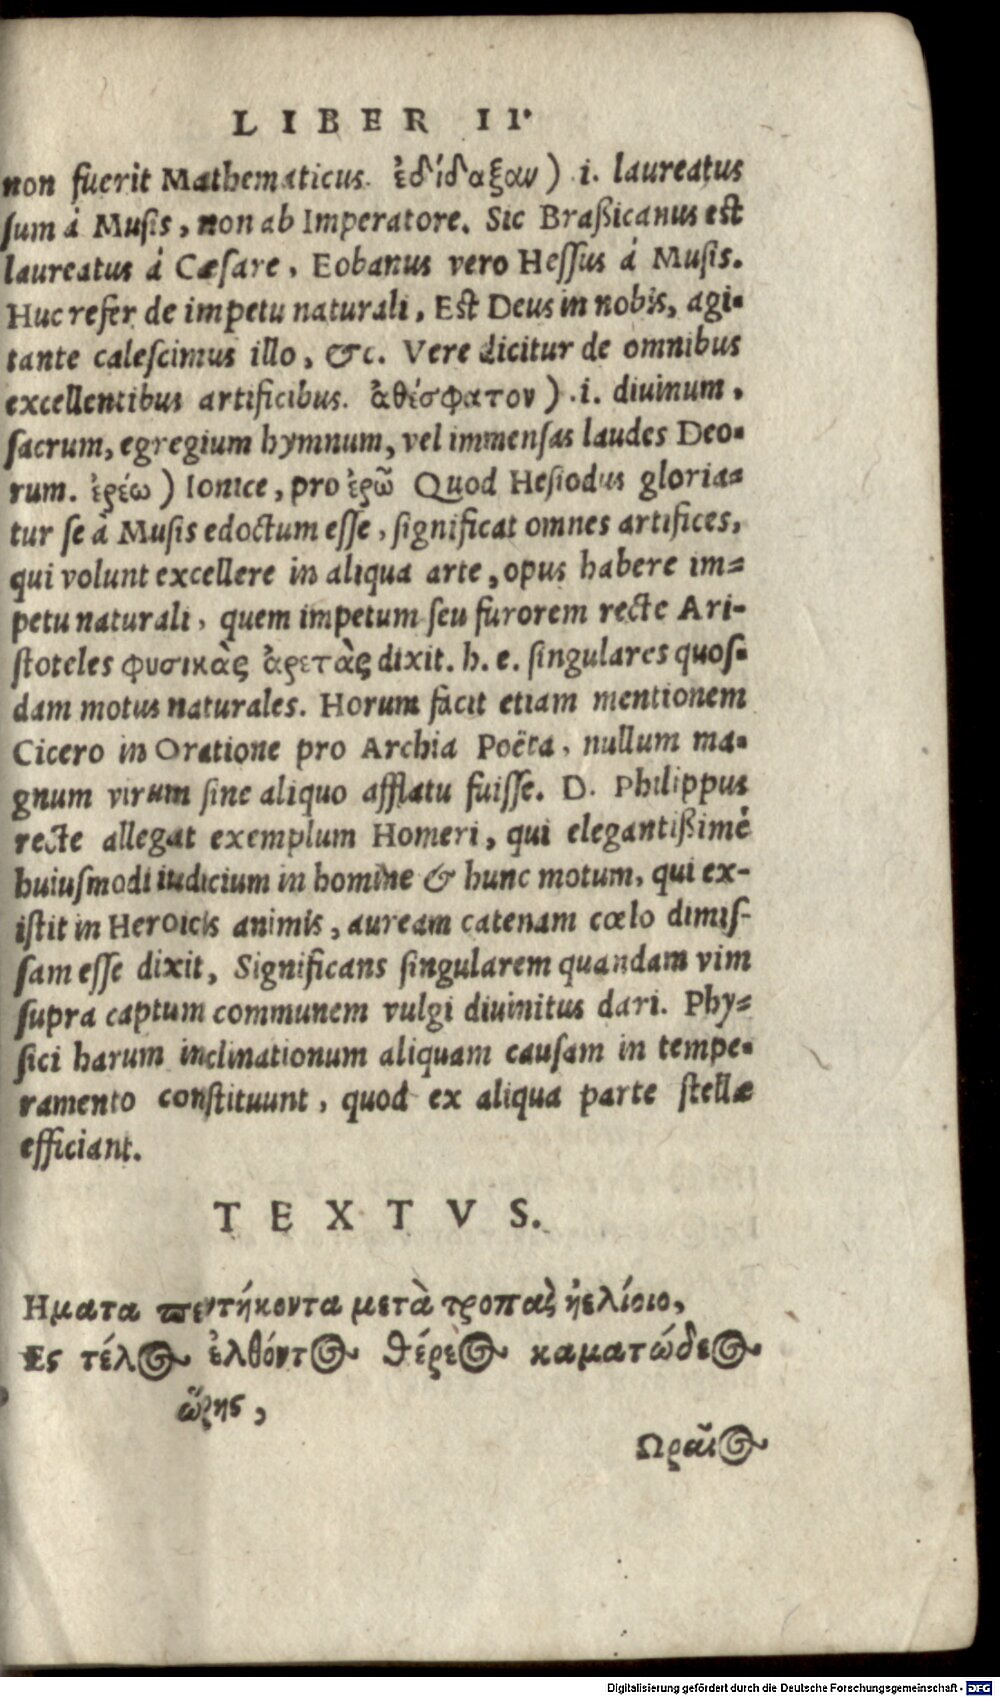 LIBER II.
non fuerit Mathematicus. ἐδίδαξαν) .i. laureatus
sum á Musis, non ab Imperatore. Sic Braßicanus est
laureatus á Cæsare, Eobanus vero Hessus á Musis.
Huc refer de impetu naturali, Est Deus in nobis, agi-
tante calescimus illo, &c. Vere dicitur de omnibus
excellentibus artificibus. ἀθέσφατον) .i. diuinum,
sacrum, egregium hymnum, vel immensas laudes Deo-
rum. ἐρέω) Ionice, pro ἐρῶ Quod Hesiodus gloria-
tur se à Musis edoctum esse, significat omnes artifices,
qui volunt excellere in aliqua arte, opus habere im-
petu naturali, quem impetum seu furorem recte Ari-
stoteles φυσικὰς ἀρετὰς dixit. h. e. singulares quos-
dam motus naturales. Horum facit etiam mentionem
Cicero in Oratione pro Archia Poëta, nullum ma-
gnum virum sine aliquo afflatu fuisse. D. Philippus
recte allegat exemplum Homeri, qui elegantißimé
huiusmodi iudicium in homine & hunc motum, qui ex-
istit in Heroicis animis, auream catenam cœlo dimis-
sam esse dixit, Significans singularem quandam vim
supra captum communem vulgi diuinitus dari. Phy-
sici harum inclinationum aliquam causam in tempe-
ramento constituunt, quod ex aliqua parte stellæ
efficiant.
TEXTVS.
Ηματα πεντήκοντα μετὰ τροπὰς ἠελίοιο,
Ες τέλος ἐλθόντος θέρεος καματώδεος
ὥρης,
Ωραῖος
Digitalisierung gefördert durch die Deutsche Forschungsgemeinschaft - DFG